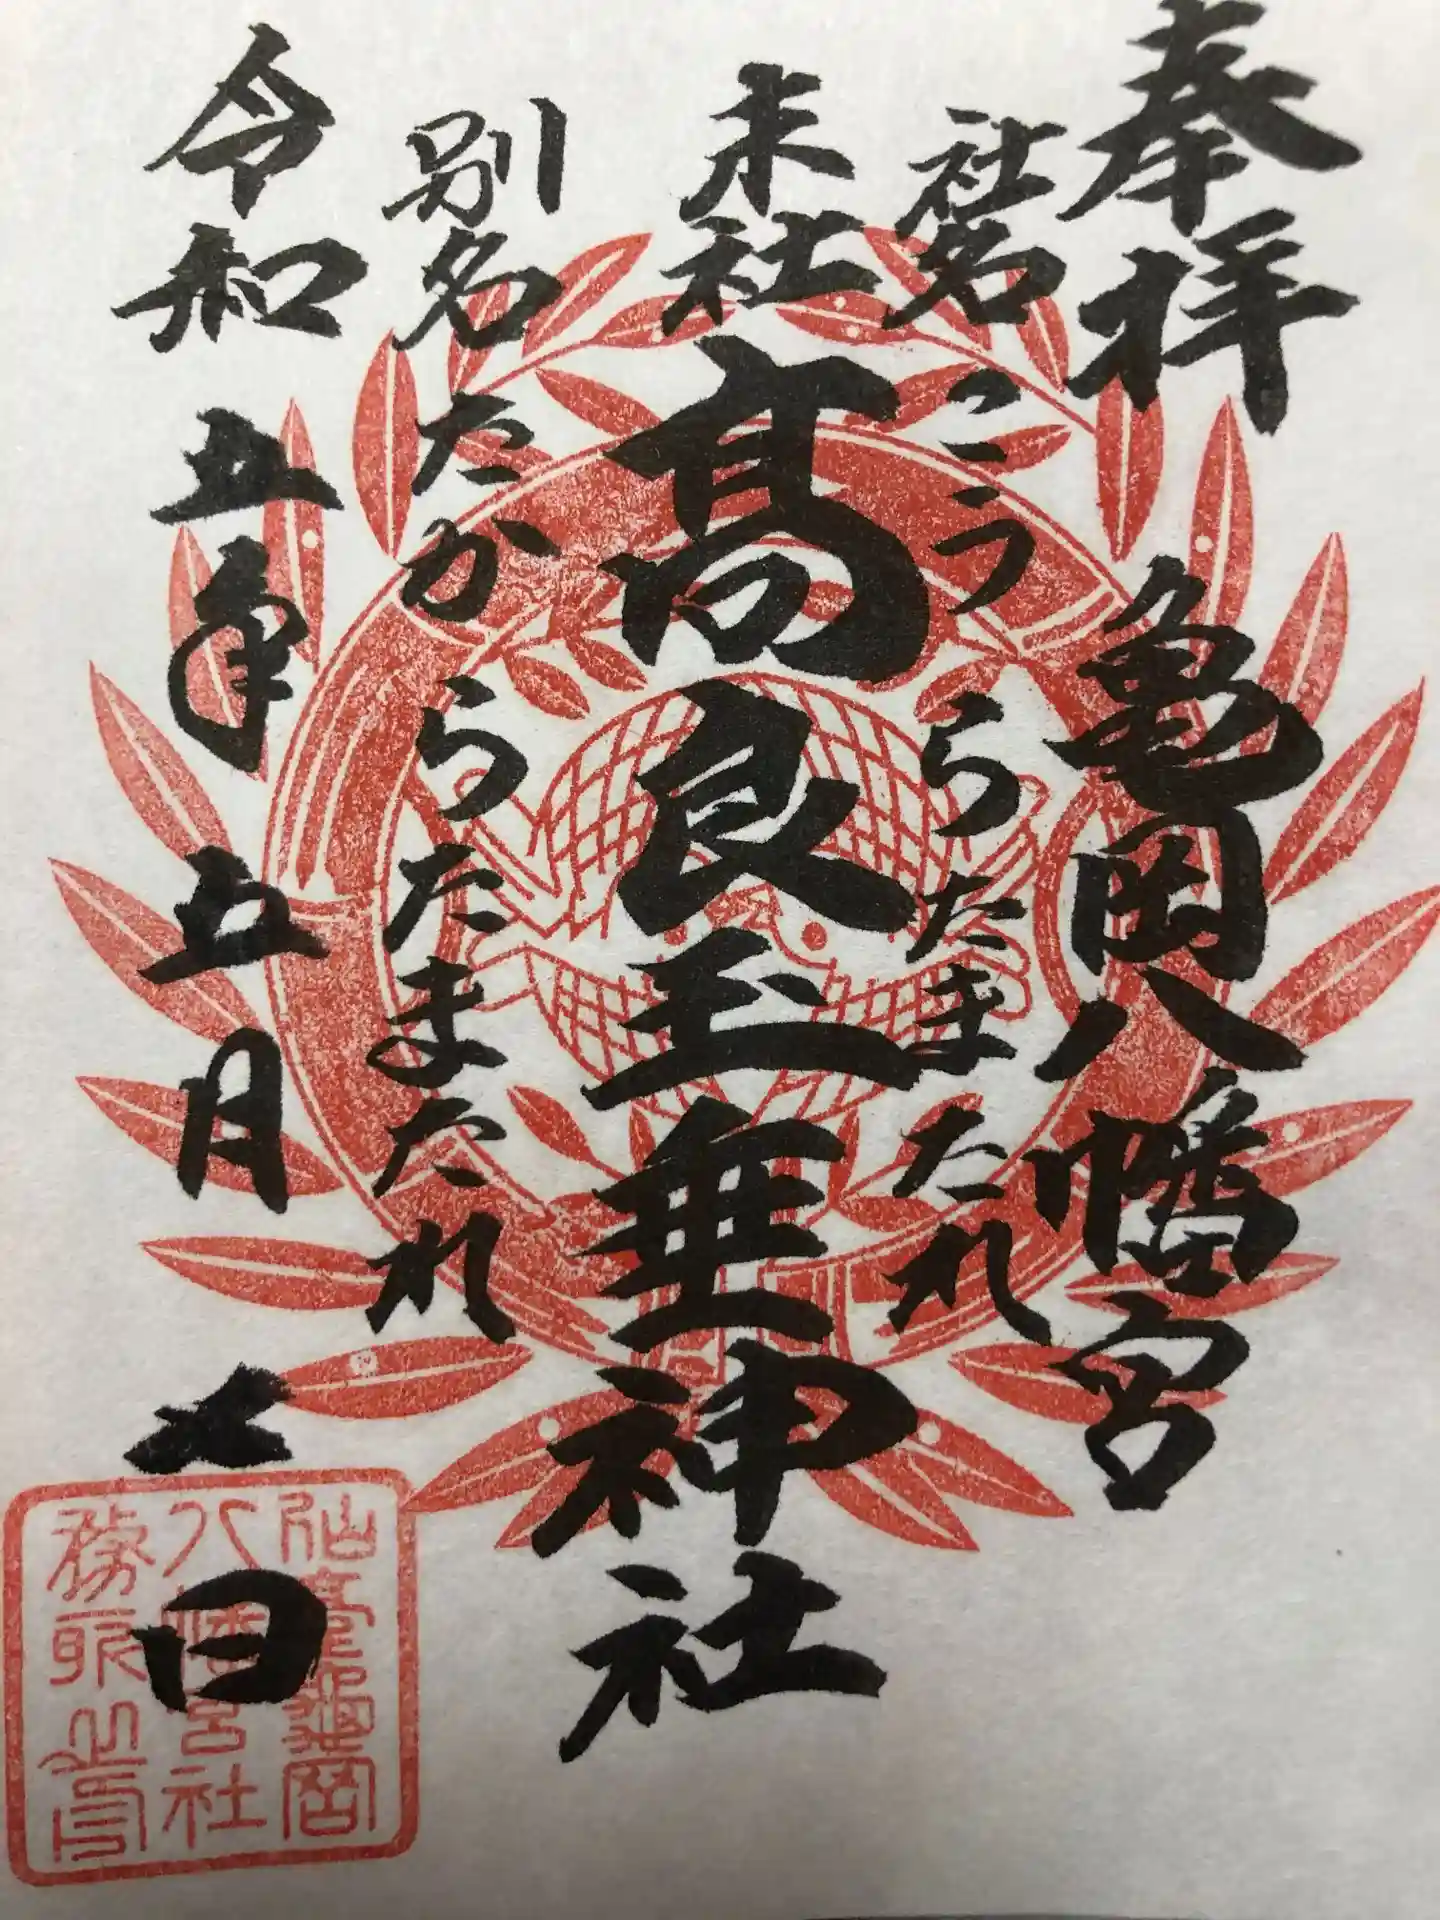 奉拝 亀岡八幡宮
社名こうらたまたれ
末社 髙良玉垂神社
別名たからたまたれ
令和五年五月七日
仙臺龜岡
八幡宮社
務所之印